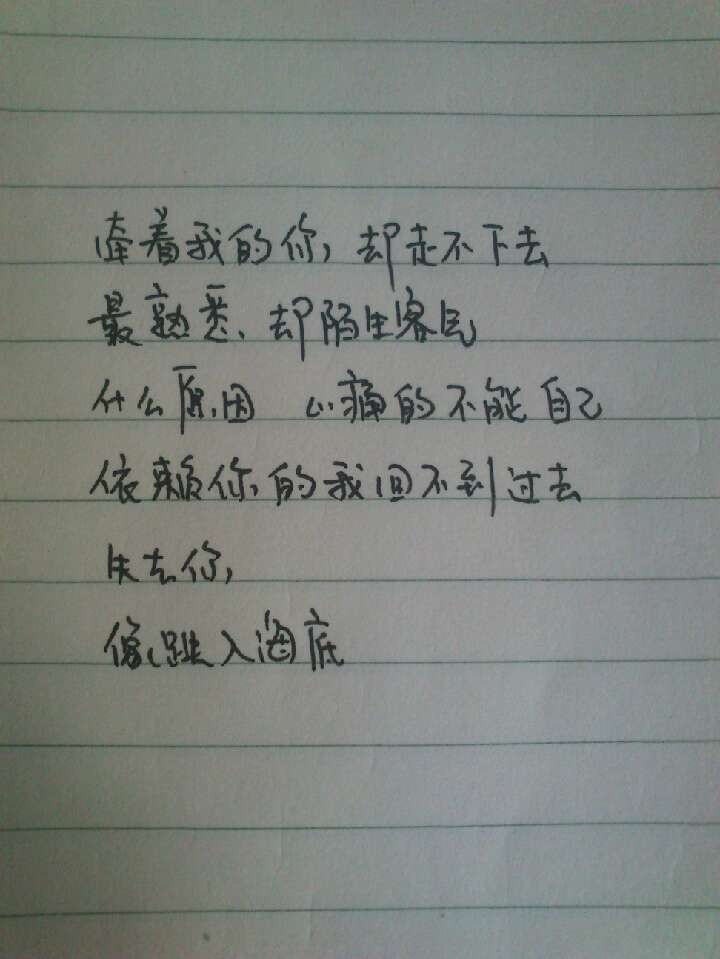 牵着我的你，却走不下去
最熟悉、却陌生客气
什么原因 心痛的不能自己
依赖你的我回不到过去
失去你，
像跳入海底